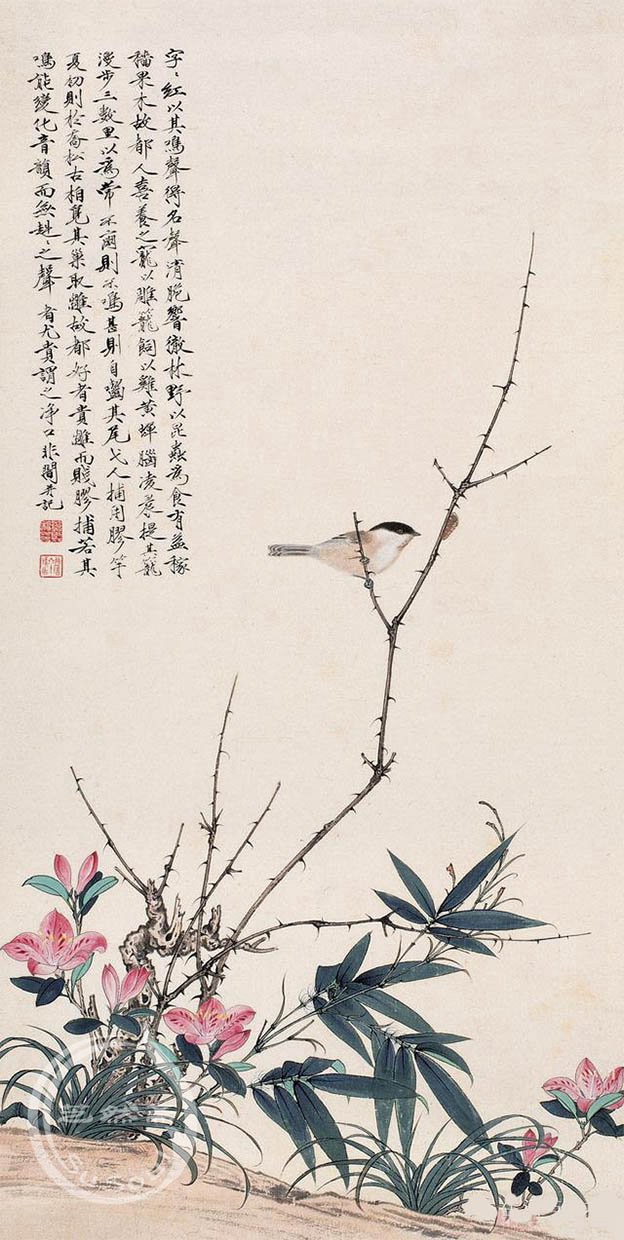 字々紅以其鳴聲得名聲清脆響徹林野以昆蟲為食有益稼
穡果木故都人喜養之寵以雕籠飼以雞黃蟬腦凌晨提其籠
漫步三數里以為常不爾則不鳴甚則自齧其尾弋人捕用膠竿
夏初則於喬松古柏覓其巢取雛故都好者貴雛而賤膠捕若其
鳴能變化音韻而無之聲者尤貴謂之淨口非闇并記